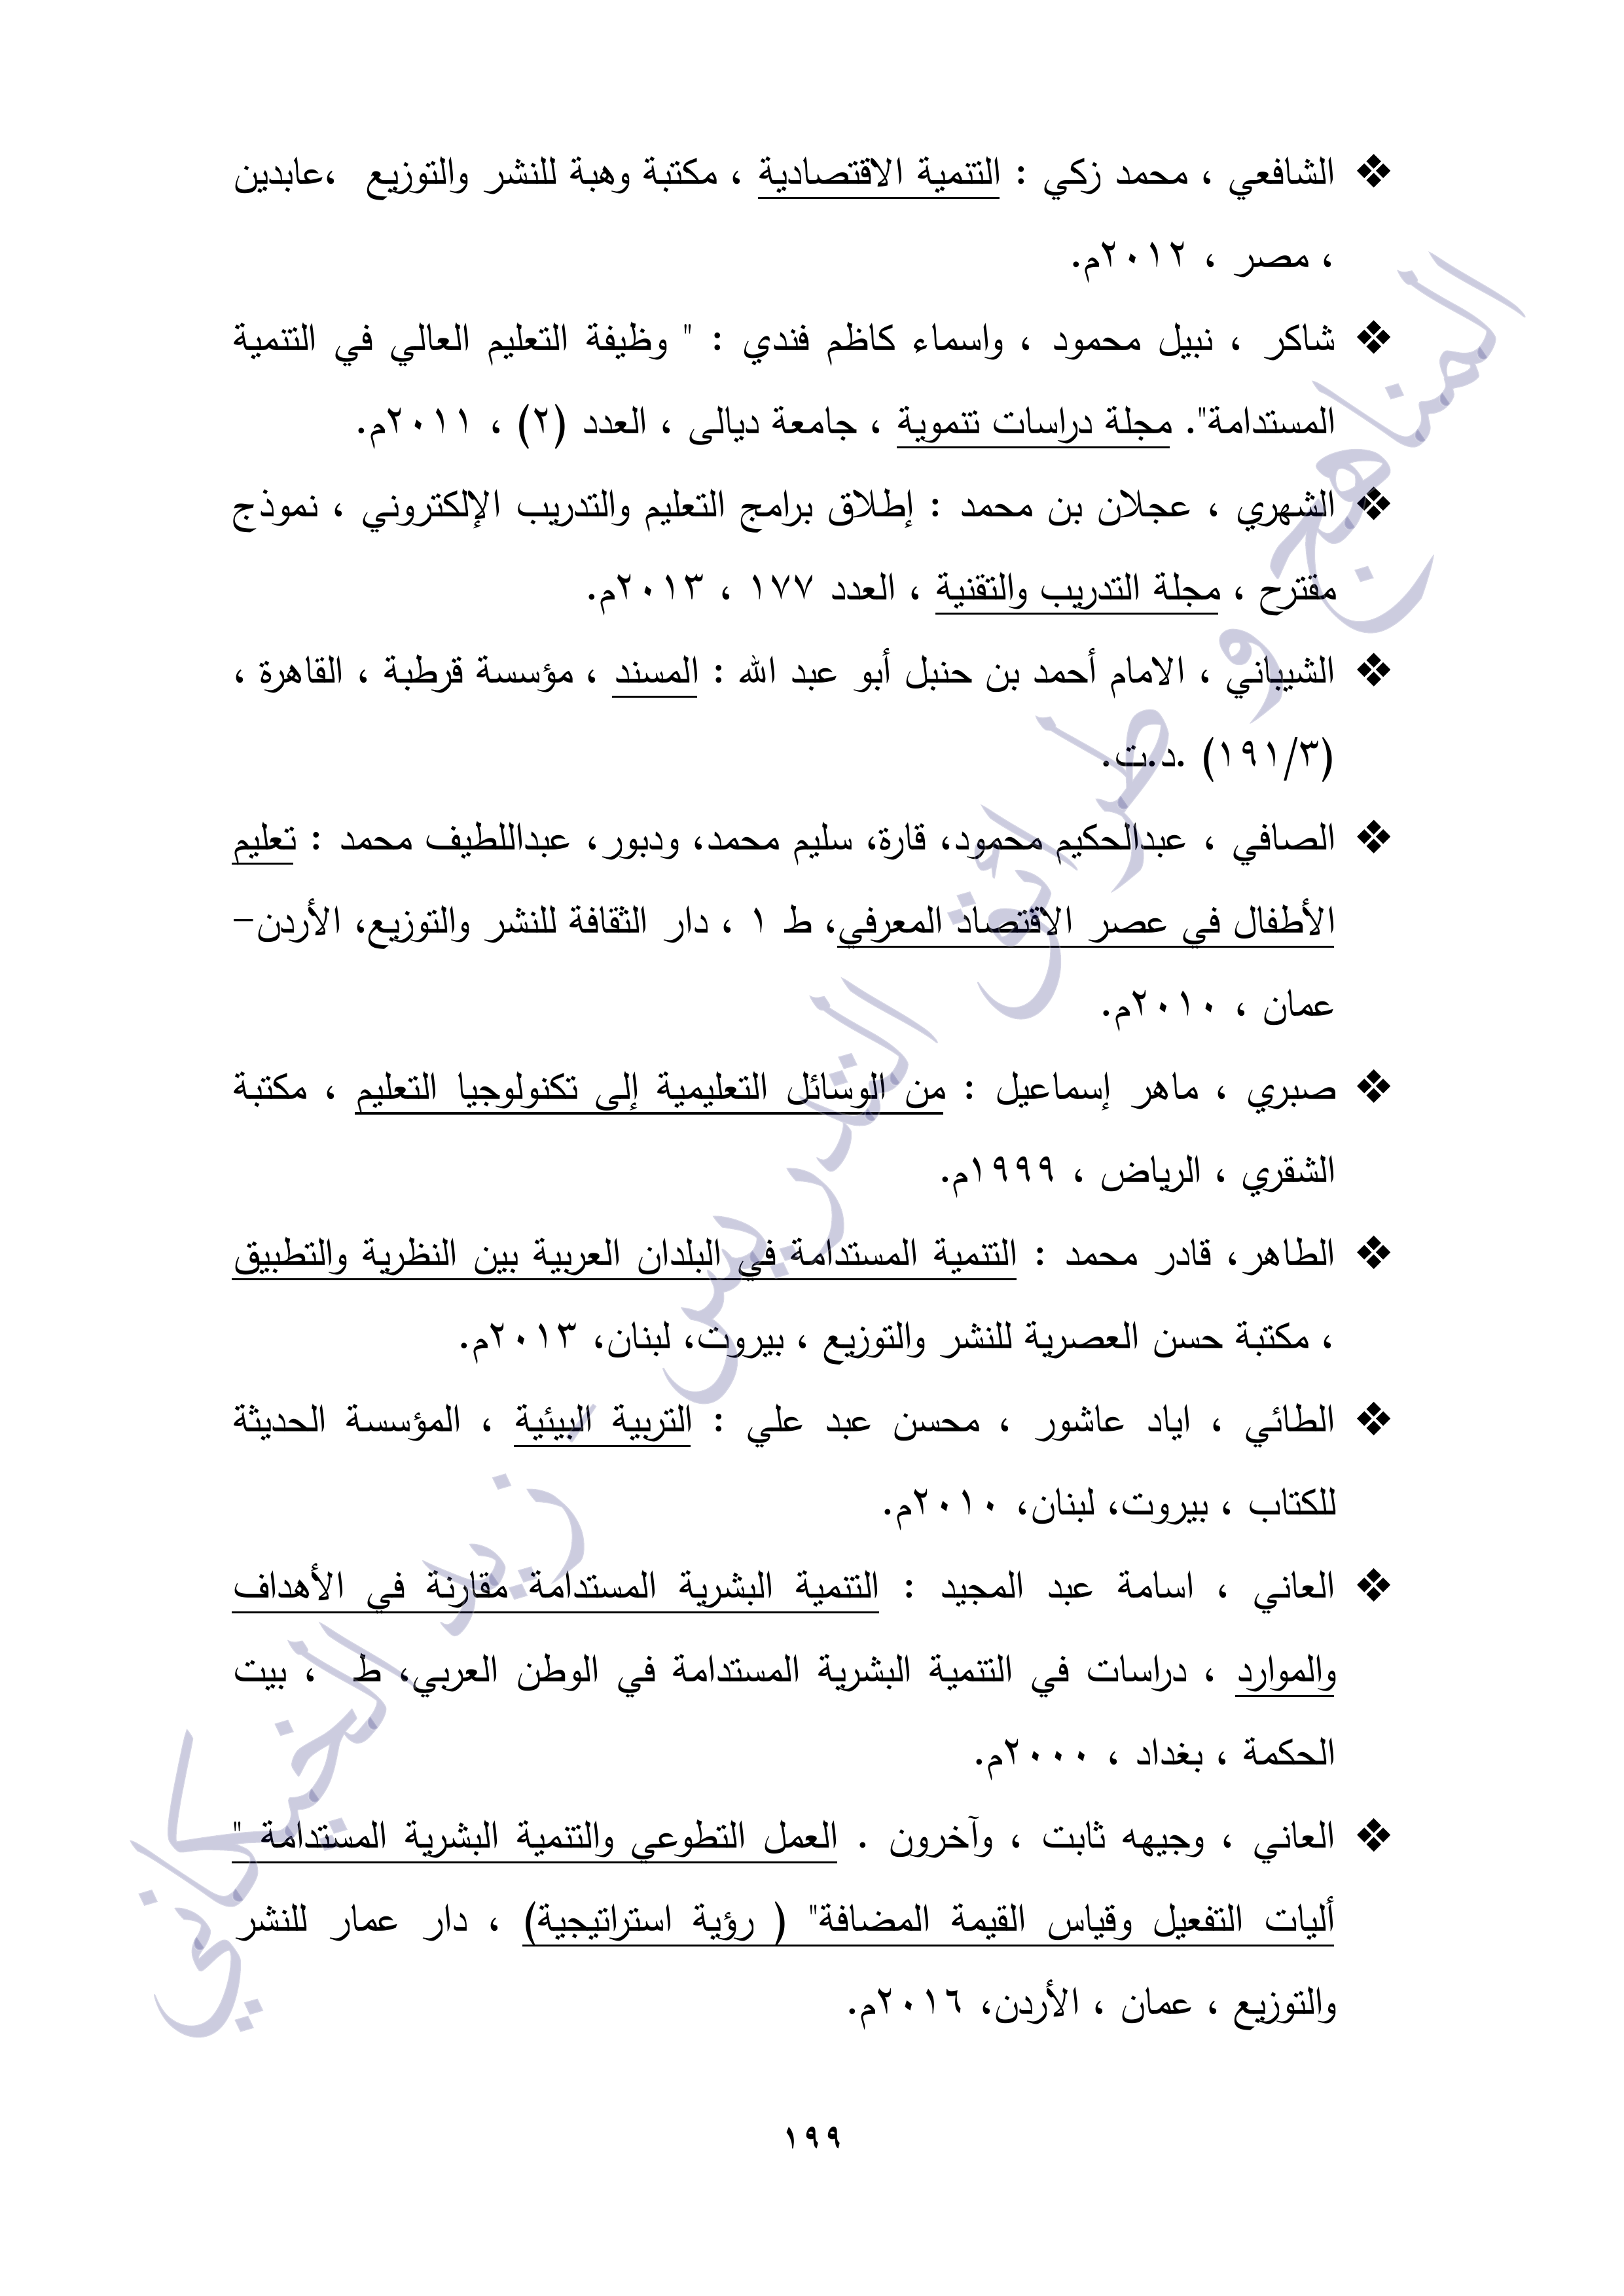 ❖ الشافعي ، محمد زكي : التنمية الاقتصادية ، مكتبة وهبة للنشر والتوزيع ،عابدين
، مصر ، ٢٠١٢م.
❖ شاكر ، نبيل محمود ، واسماء كاظم فندي : " وظيفة التعليم العالي في التنمية
المستدامة". مجلة دراسات تنموية ، جامعة ديالى ، العدد (٢) ، ٢٠١١م.
❖ الشهري ، عجلان بن محمد : إطلاق برامج التعليم والتدريب الإلكتروني ، نموذج
مقترح ، مجلة التدريب والتقنية ، العدد ١٧٧ ، ٢٠١٣م.
❖ الشيباني ، الامام أحمد بن حنبل أبو عبد الله : المسند ، مؤسسة قرطبة ، القاهرة ،
(١٩١/٣) .د.ت.
❖ الصافي ، عبدالحكيم محمود، قارة، سليم محمد، ودبور، عبداللطيف محمد : تعليم
الأطفال في عصر الاقتصاد المعرفي، ط ١ ، دار الثقافة للنشر والتوزيع، الأردن–
عمان ، ٢٠١٠م.
❖ صبري ، ماهر إسماعيل : من الوسائل التعليمية إلى تكنولوجيا التعليم ، مكتبة
الشقري ، الرياض ، ١٩٩٩م.
❖ الطاهر، قادر محمد : التنمية المستدامة في البلدان العربية بين النظرية والتطبيق
، مكتبة حسن العصرية للنشر والتوزيع ، بيروت، لبنان، ٢٠١٣م.
❖ الطائي ، اياد عاشور ، محسن عبد علي : التربية البيئية ، المؤسسة الحديثة
للكتاب ، بيروت، لبنان، ٢٠١٠م.
❖ العاني ، اسامة عبد المجيد : التنمية البشرية المستدامة مقارنة في الأهداف
والموارد ، دراسات في التنمية البشرية المستدامة في الوطن العربي، ط ، بيت
الحكمة ، بغداد ، ٢٠٠٠م.
❖ العاني ، وجيهه ثابت ، وآخرون . العمل التطوعي والتنمية البشرية المستدامة "
أليات التفعيل وقياس القيمة المضافة" ( رؤية استراتيجية) ، دار عمار للنشر
والتوزيع ، عمان ، الأردن، ٢٠١٦م.
١٩٩
المناهج و طرائق التدريس - زيد الخيكاني